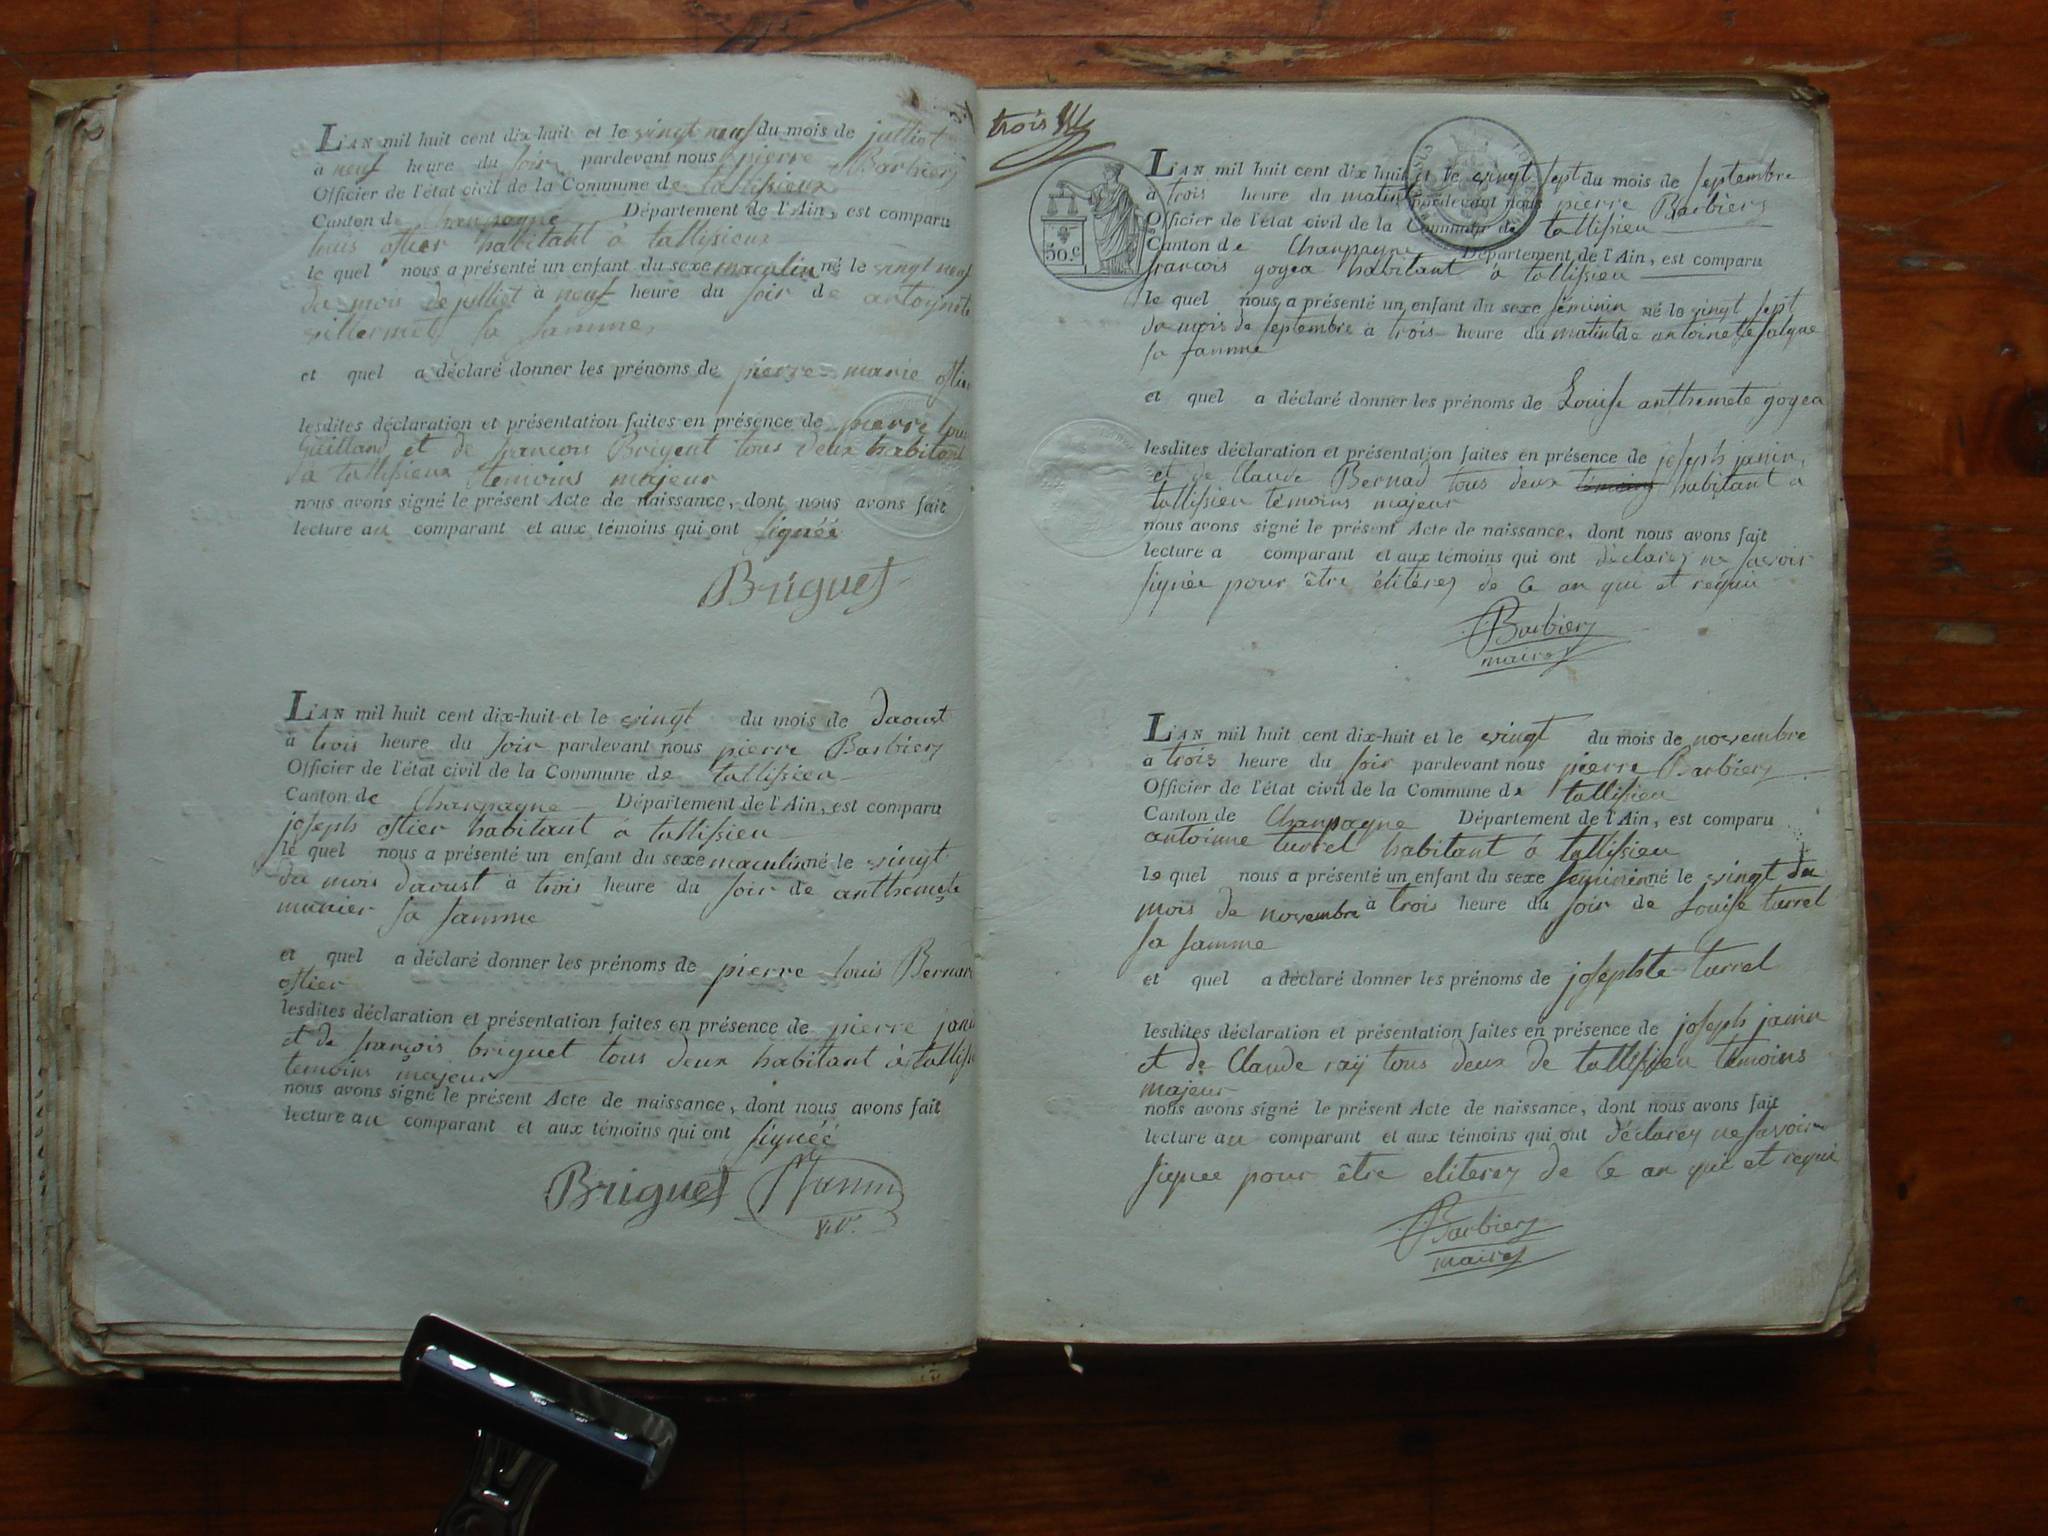 L'AN mil huit cent dix-huit et le vingt neuf du mois de julliet
à neuf heure du soir pardevant nous pierre Barbiery
Officier de l'état civil de la Commune de tallisieux
Canton de Champagne Département de l'Ain, est comparu
louis ostier habitant à tallisieux
le quel nous a présenté un enfant du sexe maculin né le vingt neuf
du mois de julliet à neuf heure du soir de antoynete
sa famme
et quel a déclaré donner les prénoms de pierre marie ostier
lesdites déclaration et présentation faites en présence de pierre louis
Guilland et de francois Brigent tous deux habitant
à tallisieux témoins majeur
nous avons signé le présent Acte de naissance, dont nous avons fait
lecture au comparant et aux témoins qui ont signéé
Briguet
L'AN mil huit cent dix-huit et le vingt du mois de daoust
à trois heure du soir pardevant nous pierre Barbiery
Officier de l'état civil de la Commune de tallisieu
Canton de Champagne Département de l'Ain, est comparu
joseph ostier habitant à tallisieu
le quel nous a présenté un enfant du sexe maculin né le vingt
du mois daoust à trois heure du soir de anthemete
munier sa famme
et quel a déclaré donner les prénoms de pierre louis Bernard
ostier
lesdites déclaration et présentation faites en présence de pierre janin
et de françois briguet tous deux habitant à tallisi
temoins majeur
nous avons signé le présent Acte de naissance, dont nous avons fait
lecture au comparant et aux témoins qui ont signéé
Briguet Janin
trois
50.c
L'AN mil huit cent dix huit et le vingt sept du mois de septembre
à trois heure du matin pardevant nous pierre Barbiery
Officier de l'état civil de la Commune de tallisieu
Canton de Champagne Département de l'Ain, est comparu
francois goyea habitant à tallisieu
le quel nous a présenté un enfant du sexe féminin né le vingt sept
du mois de septembre à trois heure du matin de antoinete salque
sa famme
et quel a déclaré donner les prénoms de Louise anthemete goyea
lesdites déclaration et présentation faites en présence de joseph janin,
et de Claude Bernad tous deux habitant a
tallisieu témoins majeur
nous avons signé le présent Acte de naissance, dont nous avons fait
lecture a comparant et aux témoins qui ont déclarey ne savoir
signée pour être élitérez de ce an qui et requi
Barbiery
maire
L'AN mil huit cent dix-huit et le vingt du mois de novembre
à trois heure du soir pardevant nous pierre Barbiery
Officier de l'état civil de la Commune de tallisieu
Canton de Champagne Département de l'Ain, est comparu
antoinne turrel habitant à tallisieu
le quel nous a présenté un enfant du sexe feminin né le vingt du
mois de novembre à trois heure du soir de Louise turrel
sa famme
et quel a déclaré donner les prénoms de josephte turrel
lesdites déclaration et présentation faites en présence de joseph janin
et de Claude raÿ tous deux de tallisieu témoins
majeur
nous avons signé le présent Acte de naissance, dont nous avons fait
lecture au comparant et aux témoins qui ont déclarey ne savoir
signee pour être eliterez de ce an qui et requi
Barbiery
maire